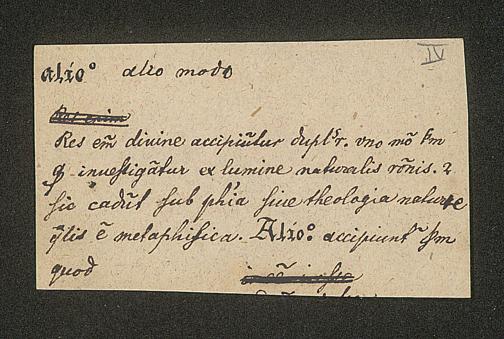 IV
alio° alio modo
Res enim
Res em̃ divine accipiũtur duplr̃. vno mõ s̃m
ꝙ inuestigãtur ex lumine naturalis rõnis. ⁊
sic cadũt sub phĩa siue theologia naturae
q̃lis ẽ metaphisica. Alio° accipiunt̃ s̃m
quod